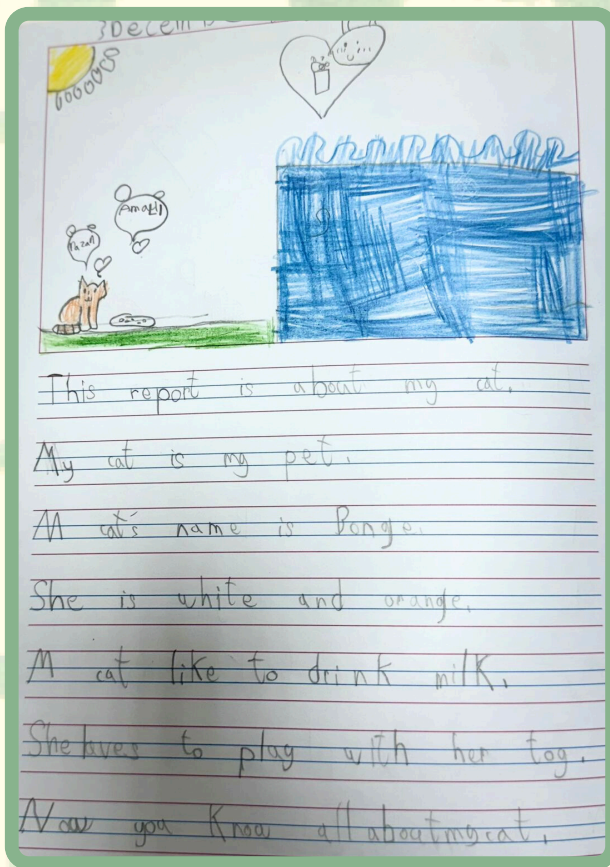 3Decem
Amal
This report is about my cat.
My cat is my pet.
M cat's name is Bonge.
She is white and orange.
M cat like to drink milk.
She loves to play with her toy.
Now you Know all about my cat.